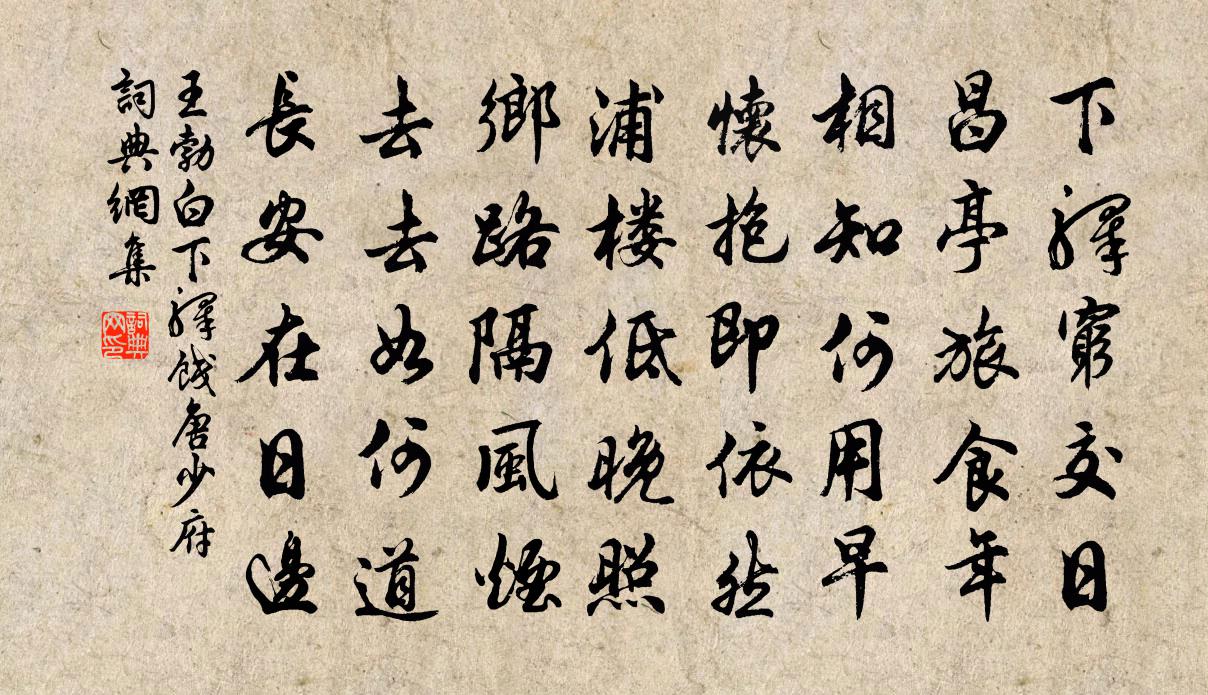 下驛窮交日
昌亭旅食年
相知何用早
懷抱即依然
浦楼低晚照
鄉路隔風煙
去去如何道
長安在日邊
王勃白下驛餞唐少府
詞典網集
詞典网印